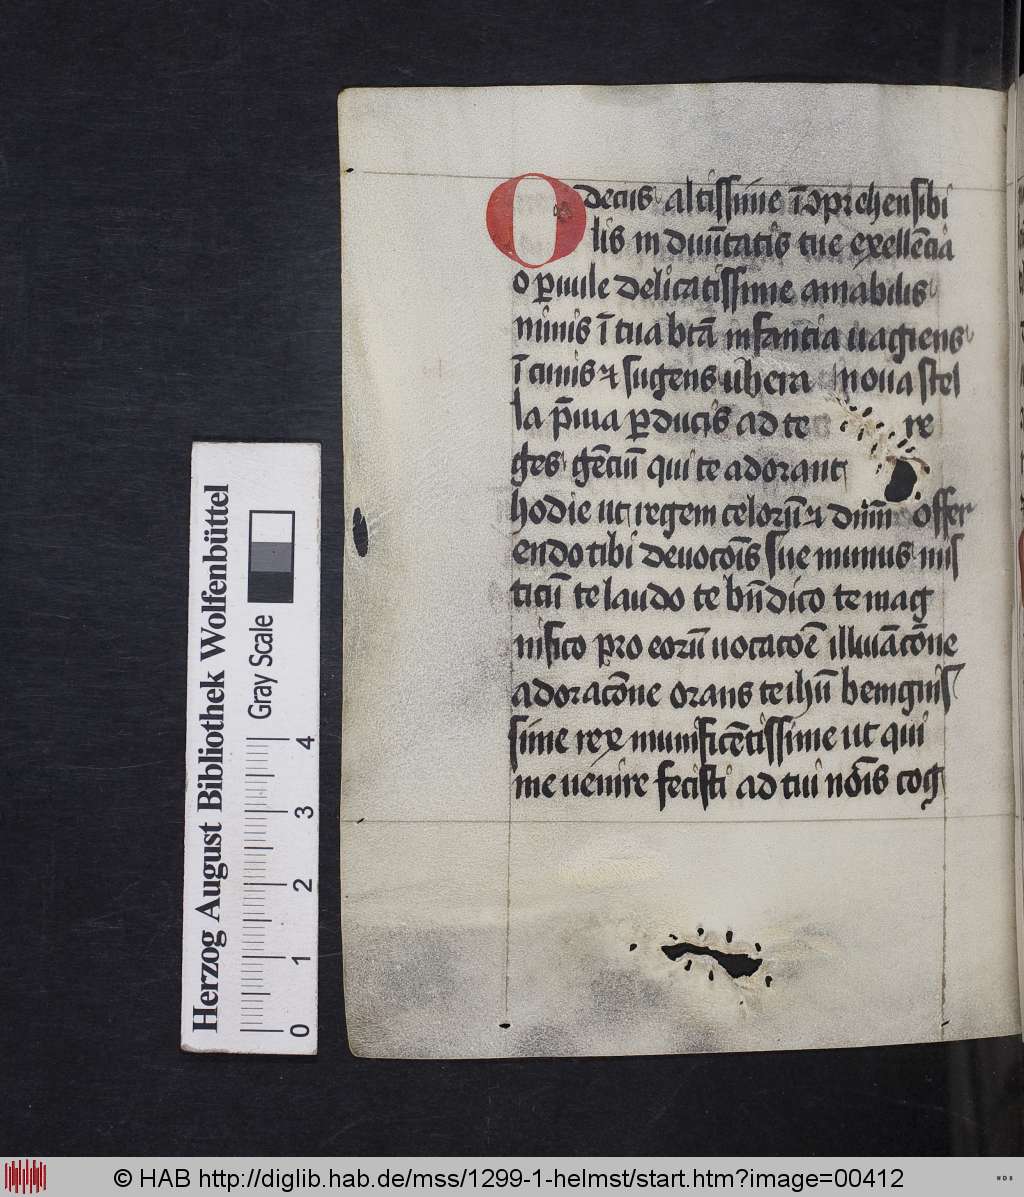 O decus altissime īꝯprehensibi
lis in diuītatis tue exellēcia
o ꝑuule delicatissime amabilis
nimis ī tua btā infantia uagiens
ī cunis ⁊ sugens ub̄era noua stel
la p̄uia ꝑducis ad te re
ges gēciū qui te adorant
hodie ut regem celorū ⁊ dn̄m offer
endo tibi deuocōis sue munus mis
ticū te laudo te bn̄dico te mag
nifico pro eorū uocacōe illuīacōne
adoracōne orans te ihū benignis
sime rex munificētissime ut qui
me uenire fecisti ad tui nōis cog
Herzog August Bibliothek Wolfenbüttel
Gray Scale
0 1 2 3 4
© HAB http://diglib.hab.de/mss/1299-1-helmst/start.htm?image=00412